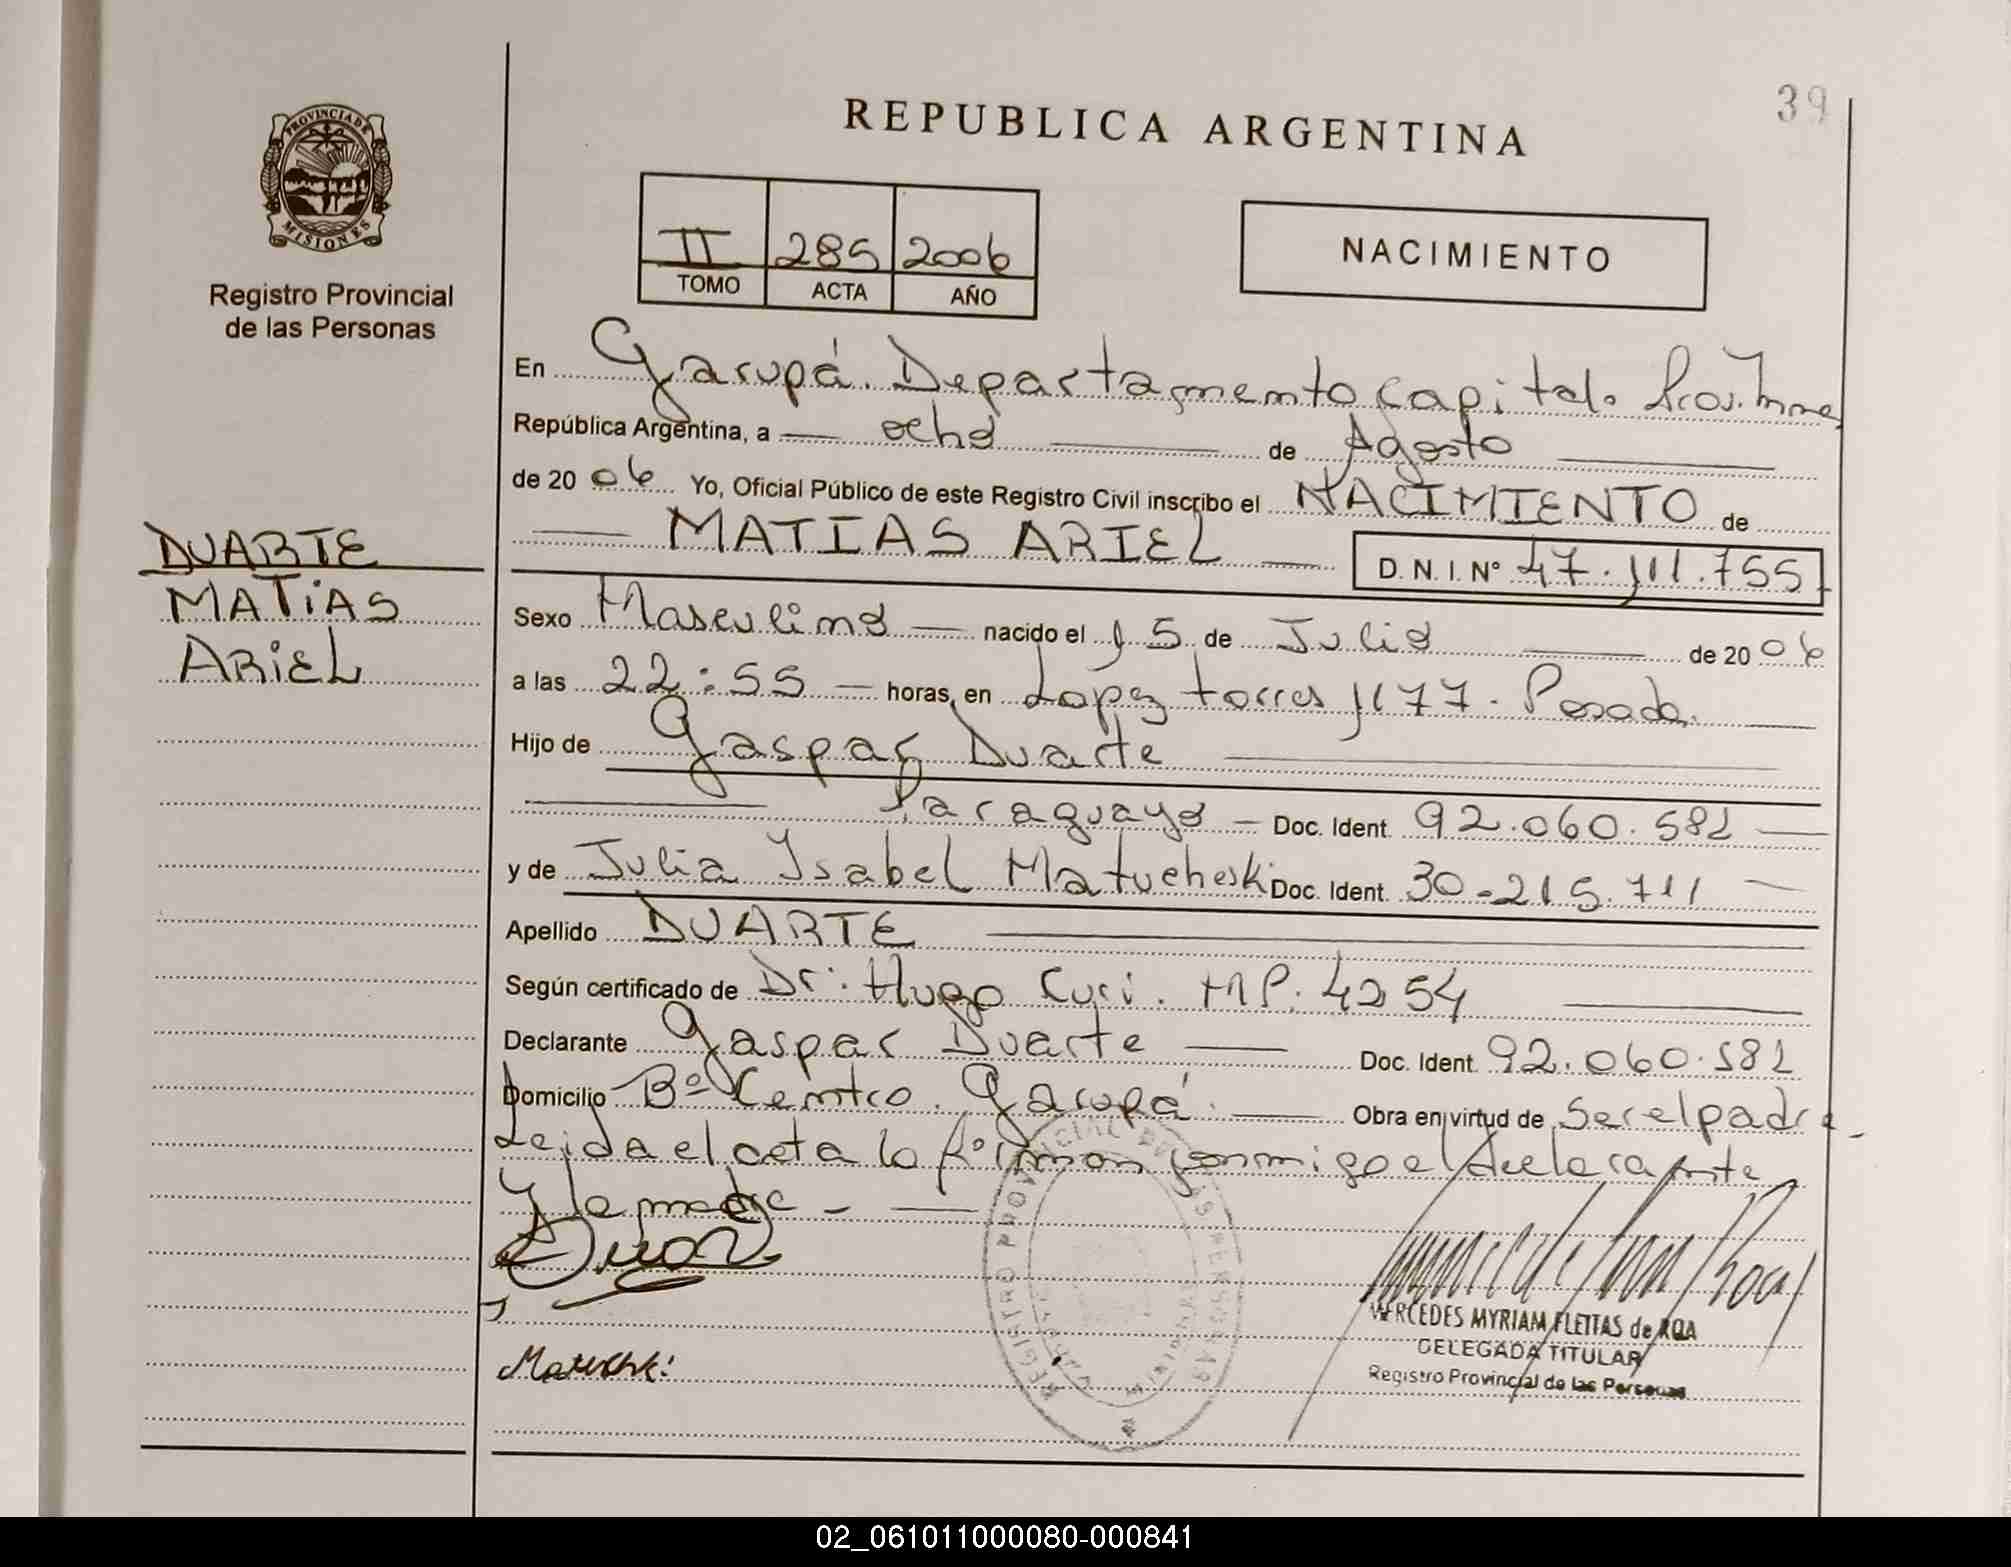 39
REPUBLICA ARGENTINA
PROVINCIA DE
MISIONES
Registro Provincial
de las Personas
II 285 2006
TOMO ACTA AÑO
NACIMIENTO
En Garupá. Departamento Capital.
República Argentina, a ocho de Agosto
de 20 06 Yo, Oficial Público de este Registro Civil inscribo el NACIMIENTO de
MATIAS ARIEL D.N.I. Nº 47.111.755
DUARTE
MATiAS
ARiEL
Sexo Masculino nacido el 15 de Julio de 20 06
a las 22:55 horas, en Lopez torres 1177. Posadas
Hijo de Gaspar Duarte
Paraguayo Doc. Ident. 92.060.582
y de Julia Ysabel Matucheski Doc. Ident. 30-215.711
Apellido DUARTE
Según certificado de Dr. Hugo Curi. MP. 4254
Declarante Gaspar Duarte Doc. Ident. 92.060.582
Domicilio Bº Centro. Garupá. Obra en virtud de Ser el padre
Leida el acta la firman conmigo el declarante
Y la madre
REGISTRO PROVINCIAL DE LAS PERSONAS
MERCEDES MYRIAM FLEITAS de ROA
DELEGADA TITULAR
Registro Provincial de las Personas
02_061011000080-000841